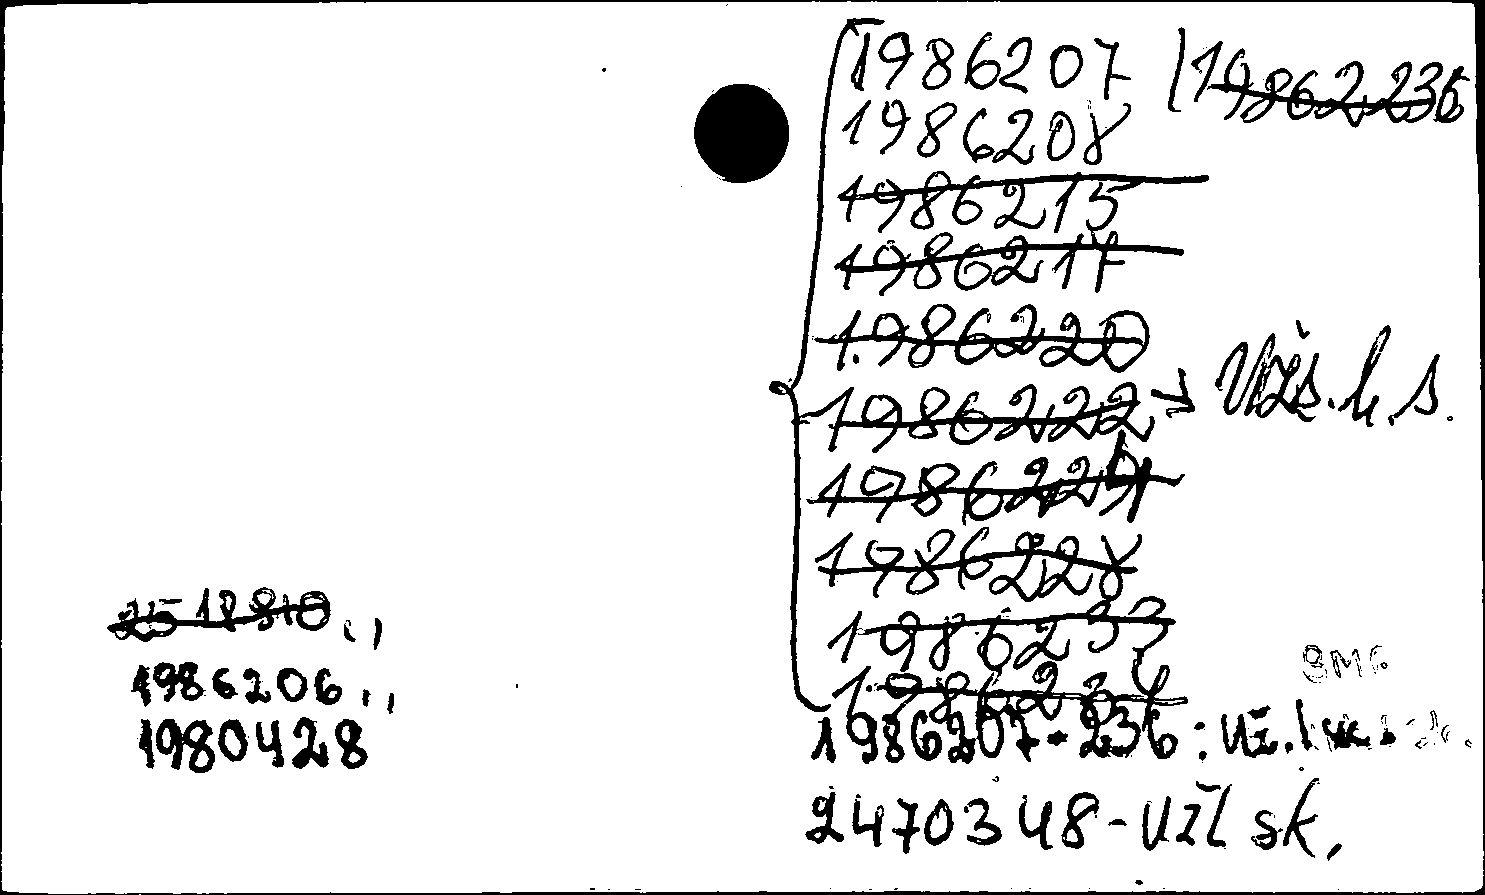 1986207 | 19862236
1986208
1986215
1986217
1986220
1986222 → Užs. l. s.
1986224
1986228
1986233
1986234
1986207-236: Už.
2470348-Užl sk.
2518810.,
1986206.,
1980428